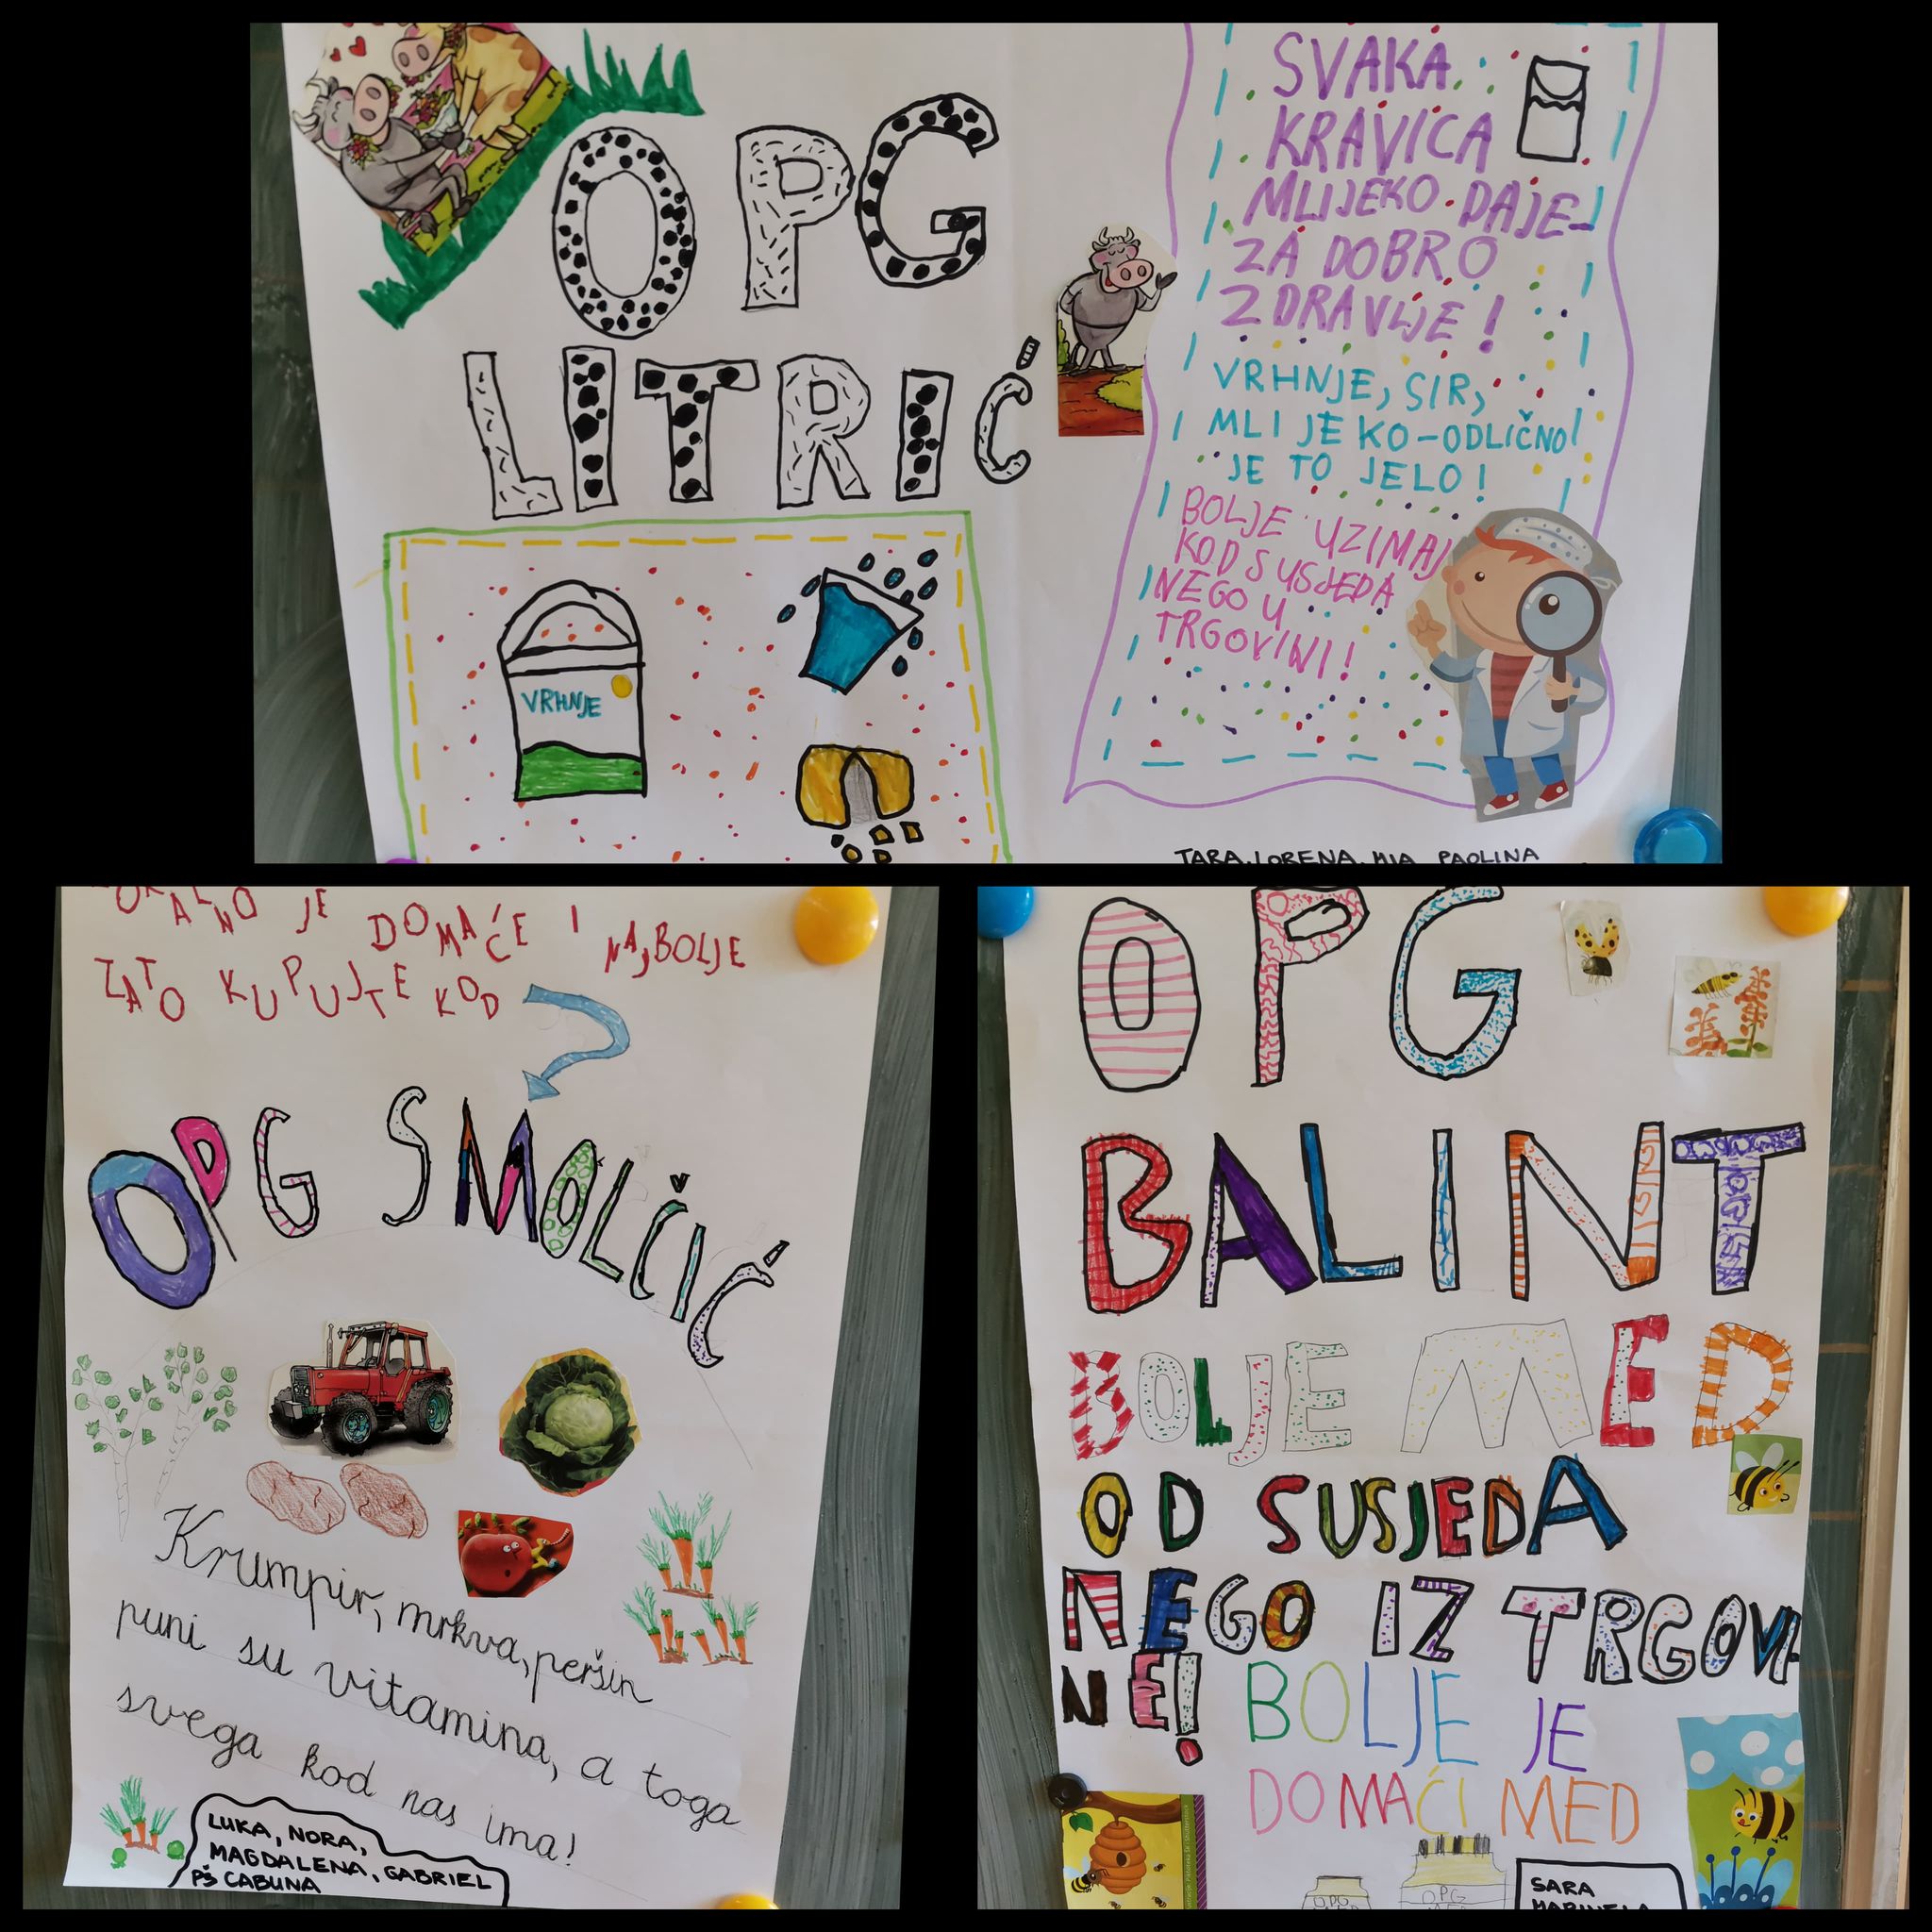 OPG
LITRIĆ
VRHNJE
SVAKA
KRAVICA
MLIJEKO DAJE
ZA DOBRO
ZDRAVLJE!
VRHNJE, SIR,
MLIJEKO-ODLIČNO
JE TO JELO!
BOLJE UZIMAJ
KOD SUSJEDA
NEGO U
TRGOVINI!
TARA, LORENA, MIA, PAOLINA
JE DOMAĆE I NAJBOLJE
ZATO KUPUJTE KOD
OPG SMOLČIĆ
Krumpir, mrkva, peršin
puni su vitamina, a toga
svega kod nas ima!
LUKA, NORA,
MAGDALENA, GABRIEL
PŠ CABUNA
OPG
BALINT
BOLJE MED
OD SUSJEDA
NEGO IZ TRGOVI
NE!
BOLJE JE
DOMAĆI MED
OPG
OPG
SARA
MARINELA